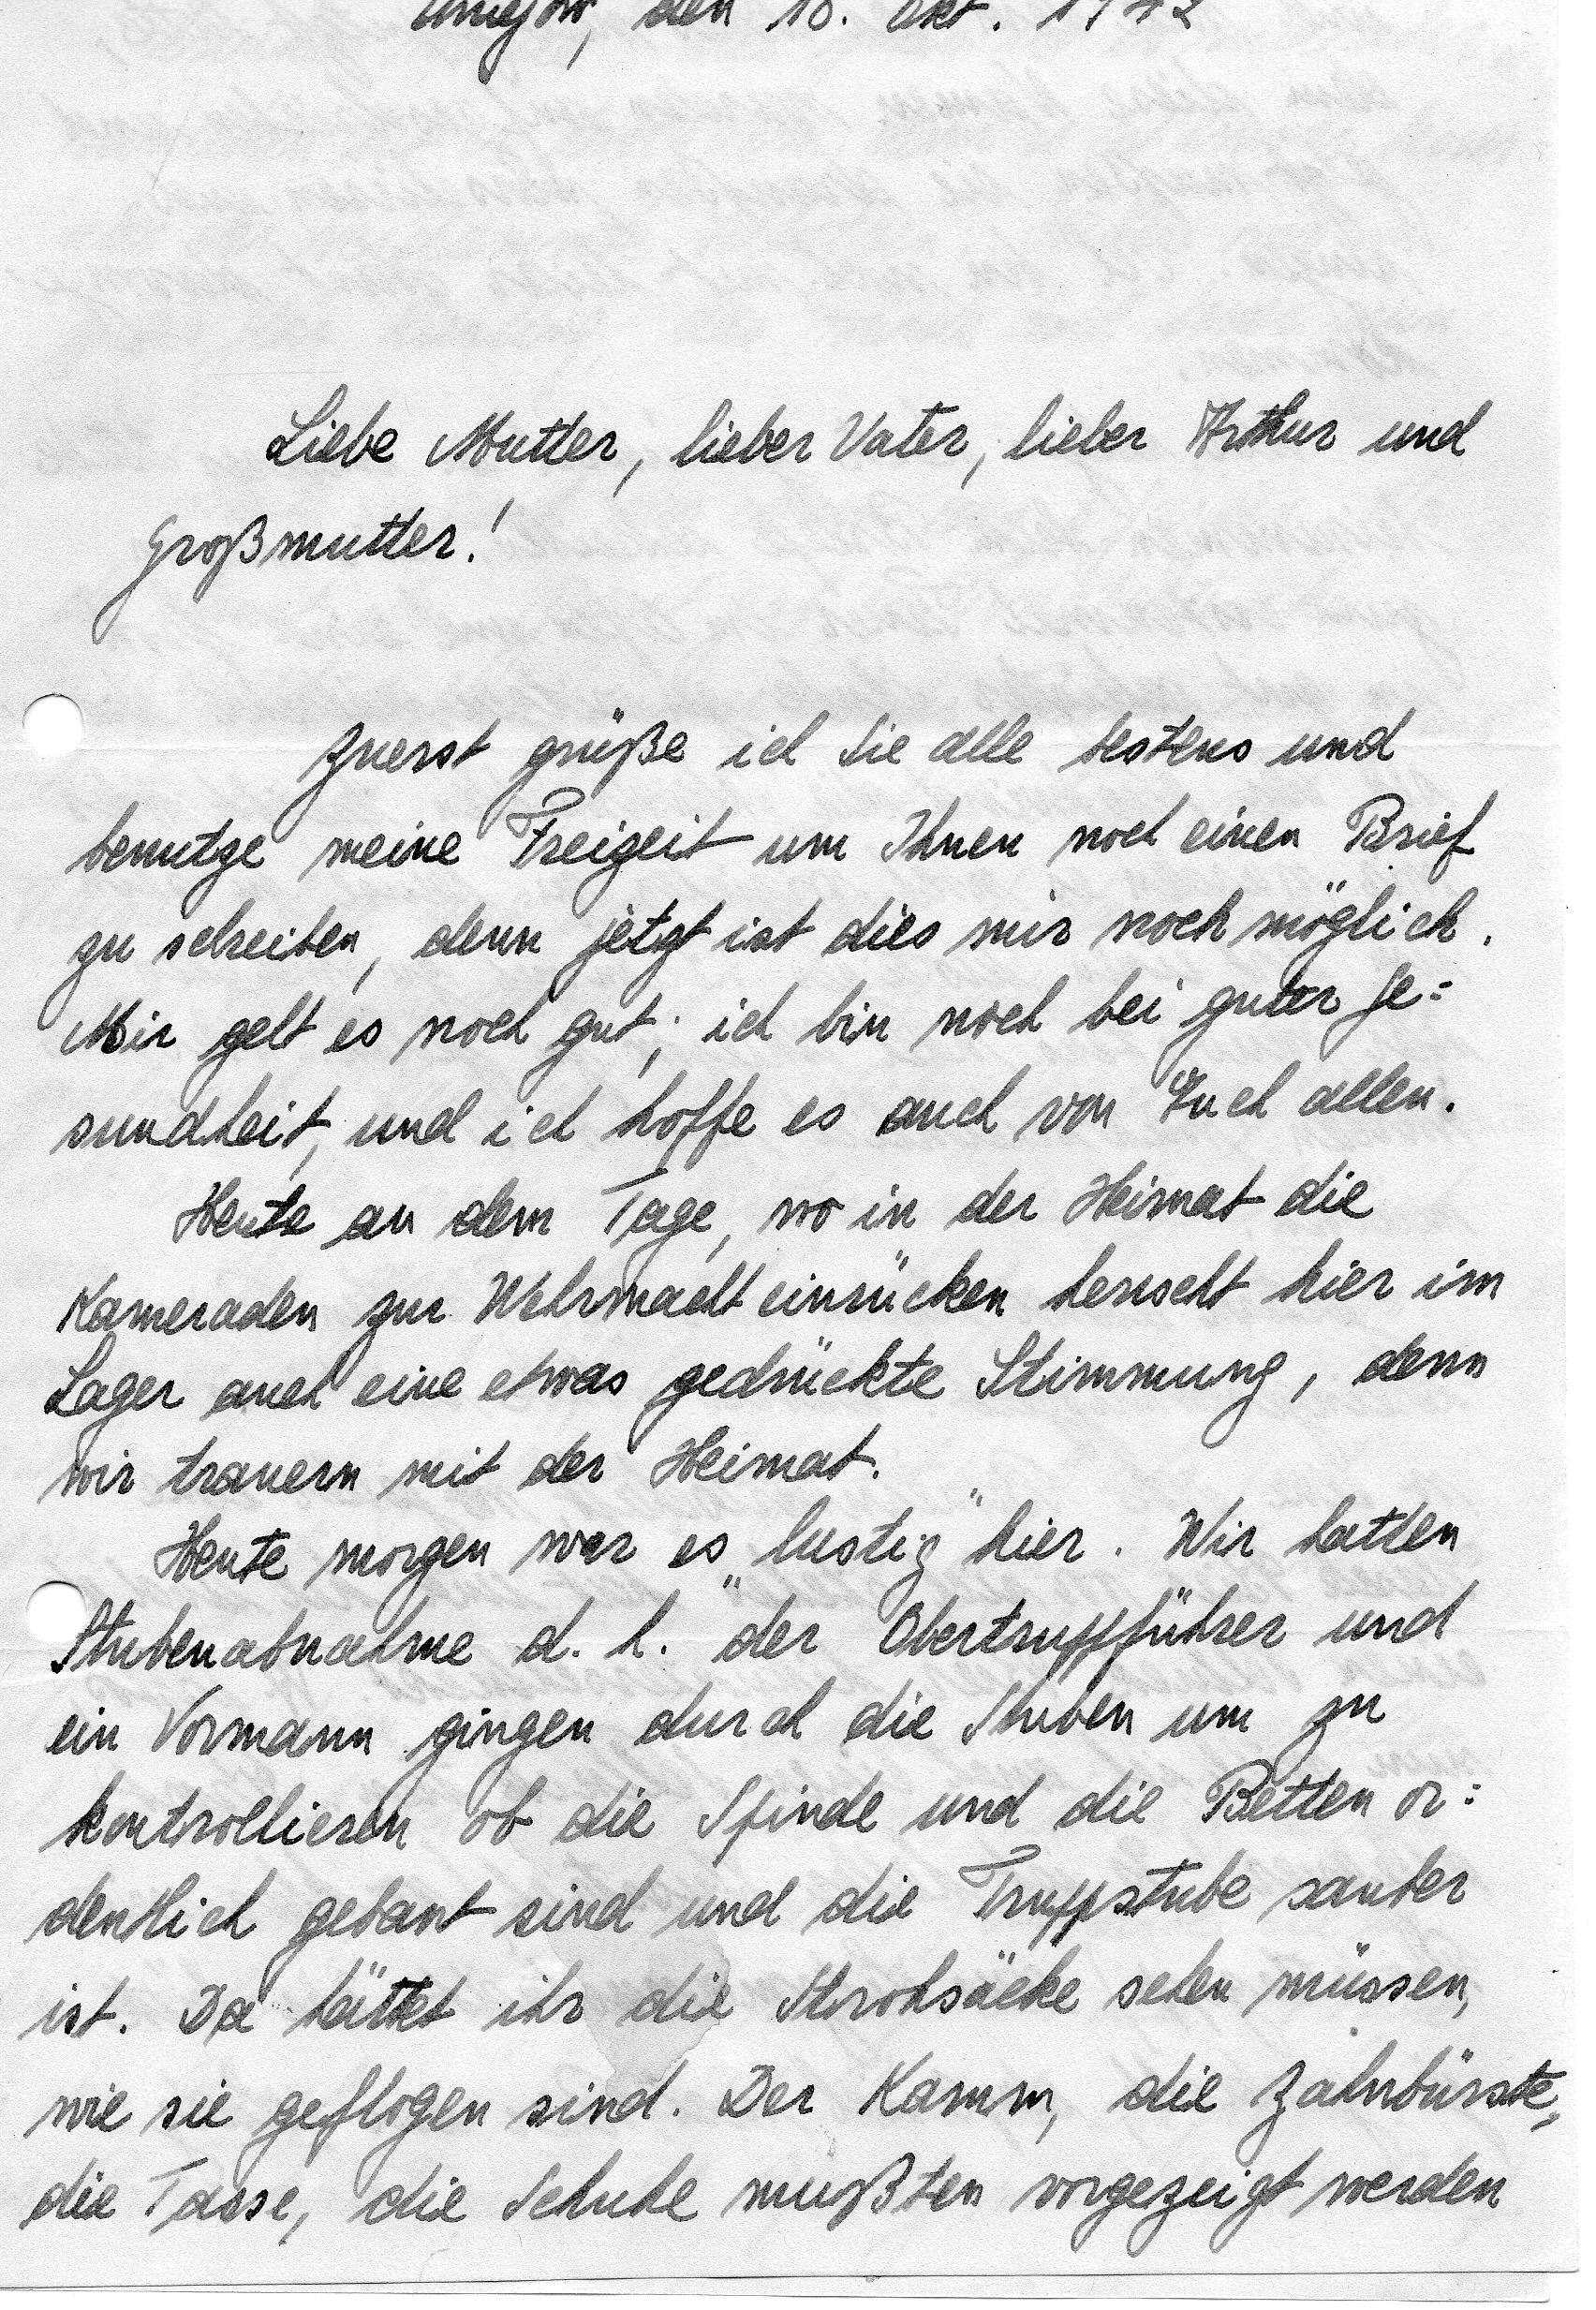 den 18. Okt. 1942
Liebe Mutter, lieber Vater, lieber Arthur und
Großmutter!
Zuerst grüße ich Sie alle bestens und
benutze meine Freizeit um Ihnen noch einen Brief
zu schreiben, denn jetzt ist dies mir noch möglich.
Mir geht es noch gut; ich bin noch bei guter Ge=
sundheit, und ich hoffe es auch von Euch allen.
Heute an dem Tage, wo in der Heimat die
Kameraden zur Wehrmacht einrücken herrscht hier im
Lager auch eine etwas gedrückte Stimmung, denn
wir trauern mit der Heimat.
Heute morgen war es „lustig" hier. Wir hatten
Stubenabnahme d. h. der Obertruppführer und
ein Vormann gingen durch die Stuben um zu
kontrollieren ob die Spinde und die Betten or=
dentlich gebaut sind und die Truppstube sauber
ist. Da hättet ihr die Strohsäcke sehen müssen,
wie sie geflogen sind. Der Kamm, die Zahnbürste,
die Tasse, die Schuhe mußten vorgezeigt werden